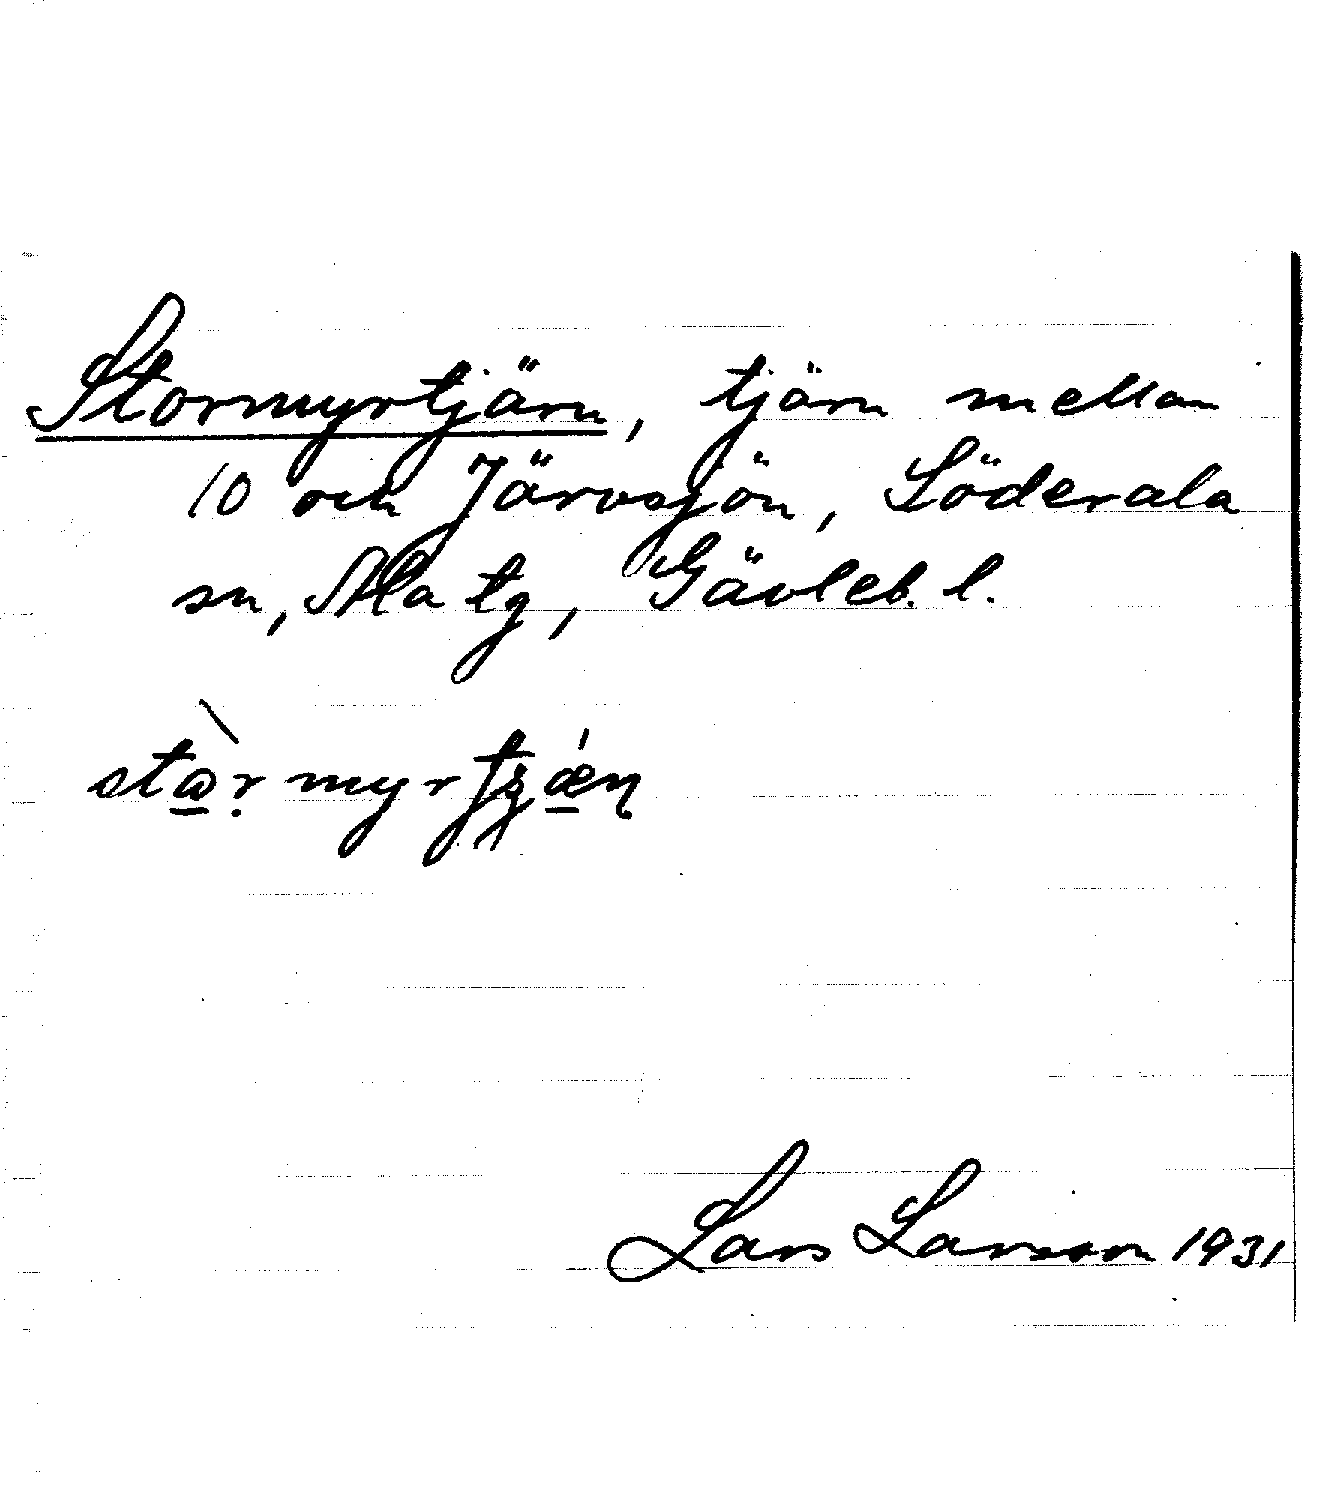 Stormyrtjärn, tjärn mellan
10 och Järvsjön, Söderala
sn, Ala tg, Gävleb. l.
Lars Larsson 1931